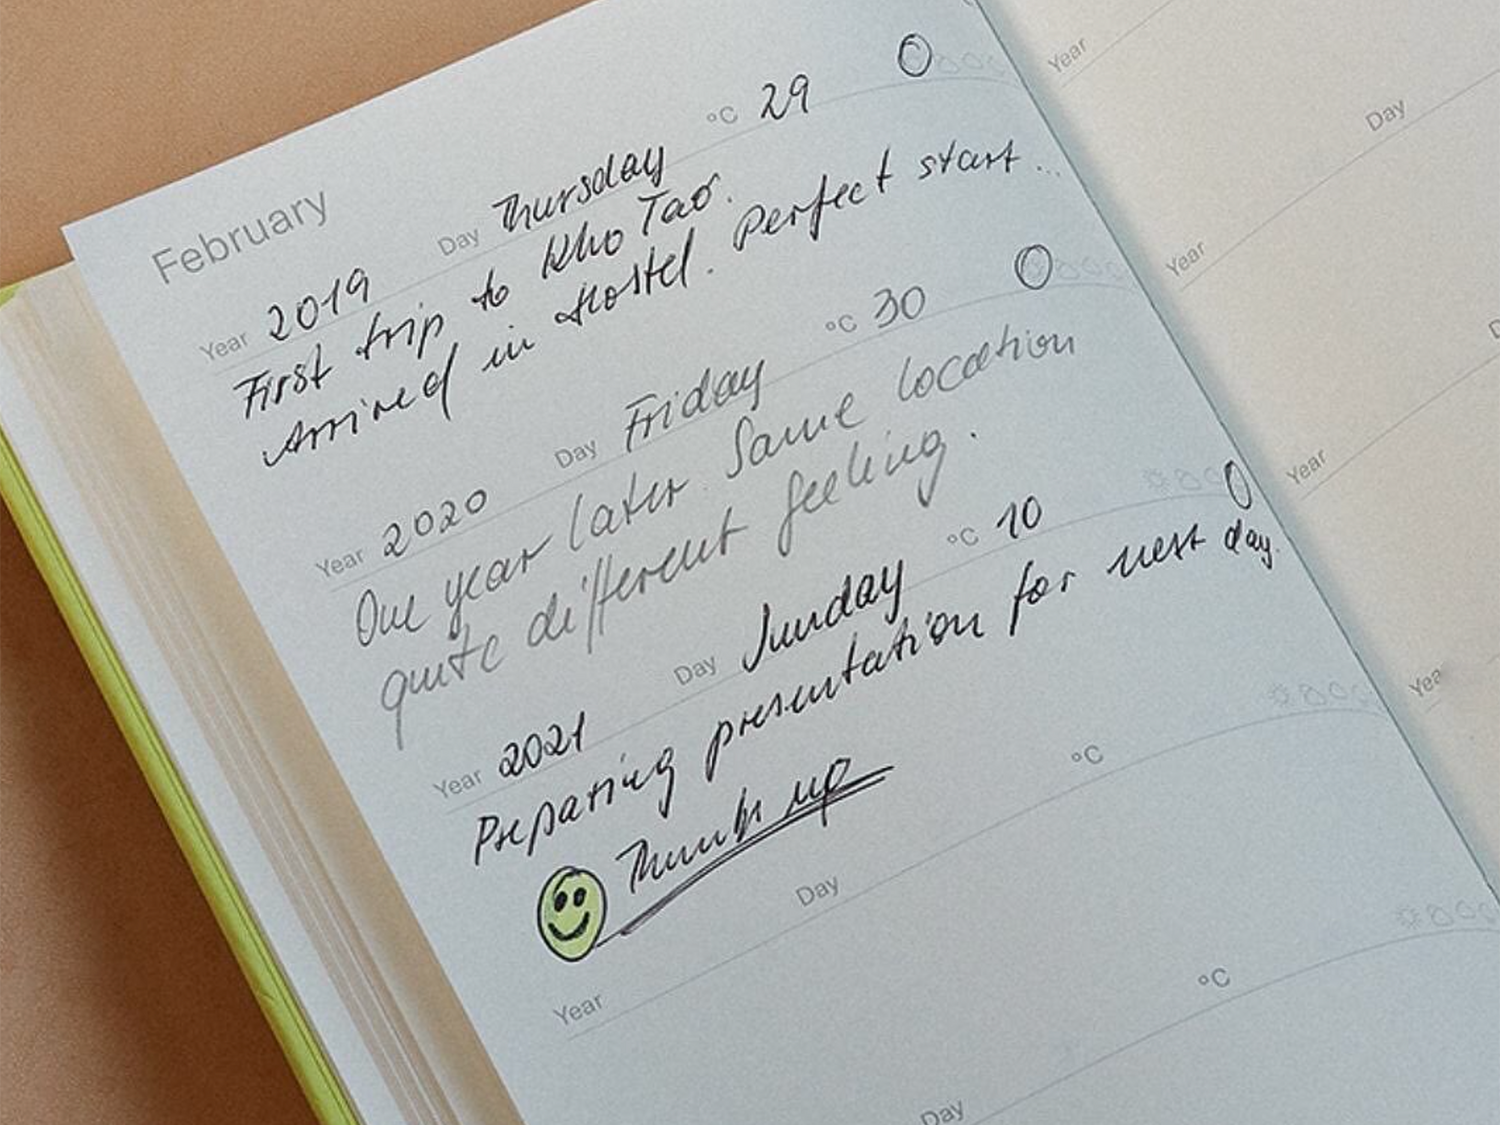 February
Year 2019 Day Thursday °C 29
First trip to Kho Tao.
Arrived in Hostel. Perfect start...
Year 2020 Day Friday °C 30
One year later. Same location
quite different feeling.
Year 2021 Day Sunday °C 10
Preparing presentation for next day.
Thumb up
Year Day °C
Day °C
Year
Day
Year
Year
Yea